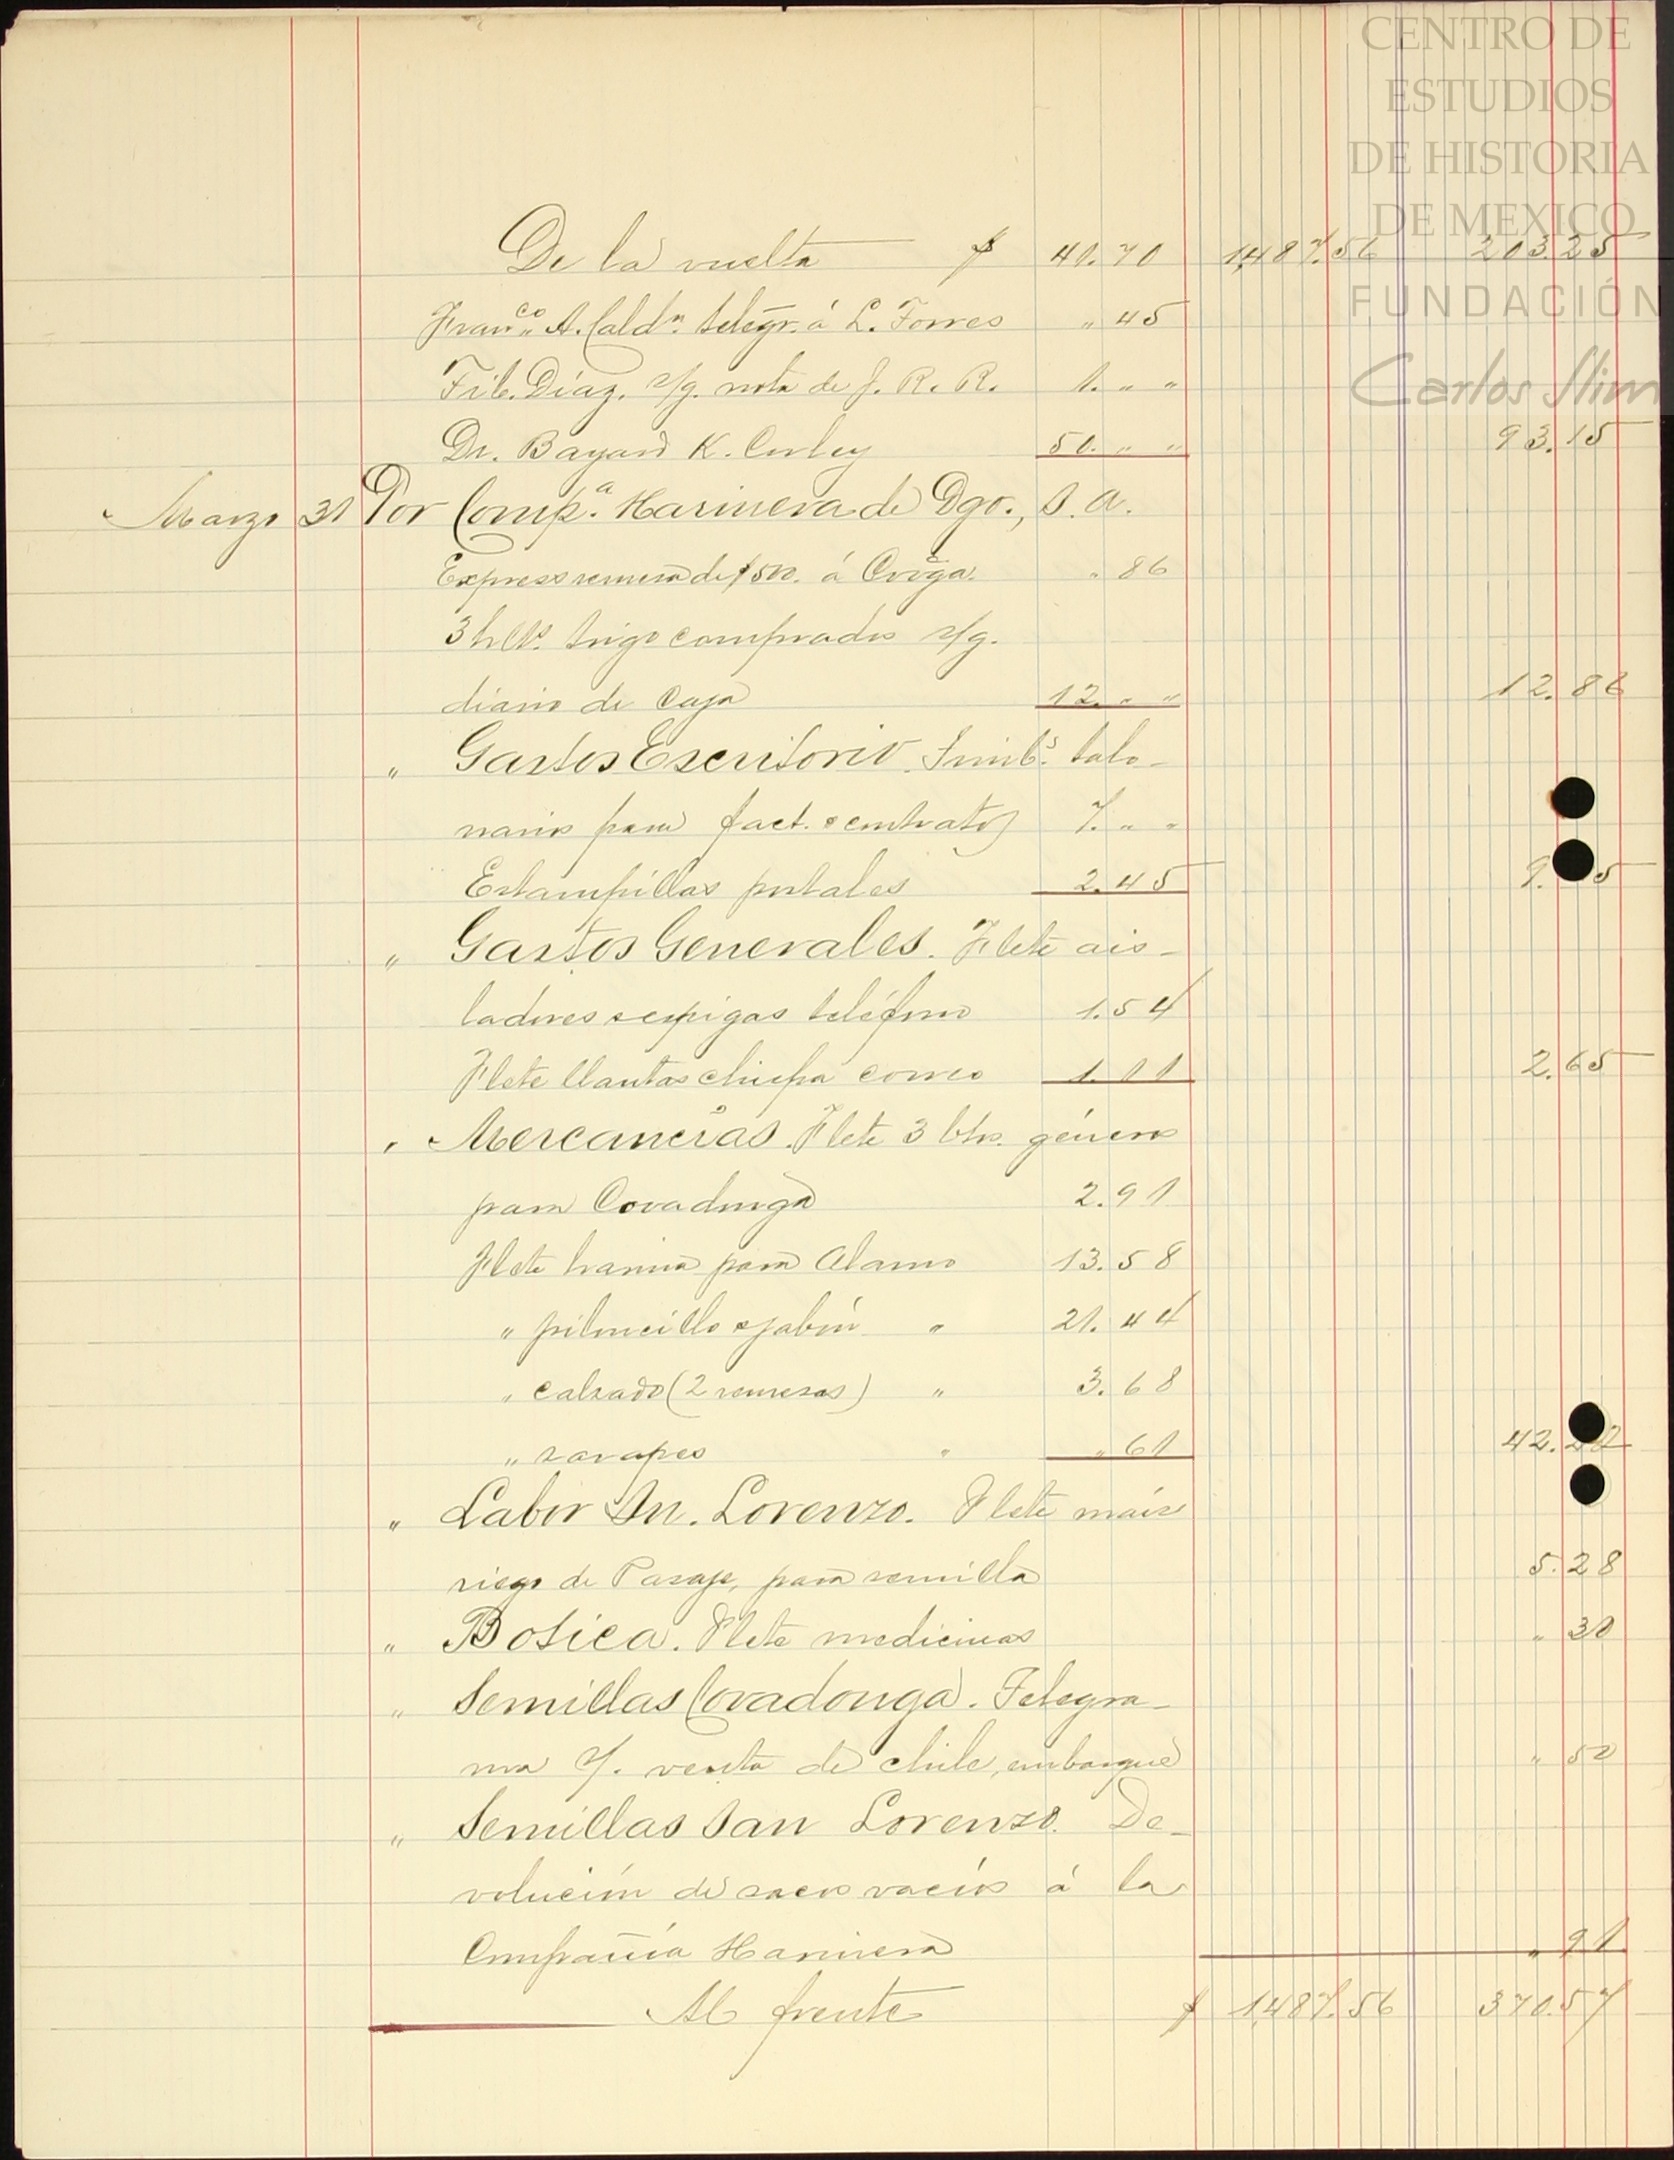 CENTRO DE
ESTUDIOS
DE HISTORIA
DE MEXICO
FUNDACIÓN
Carlos Slim
De la vuelta $ 41.70 1,487.56 203.25
Franco. A. Caldn. telegr. á L. Torres " 45
Fil. Díaz, s/g. nota de J. R. R. 1. " "
Dr. Bayard K. Corley 50. " " 93.15
Marzo 31 Por Compa. Harinera de Dgo., S. A.
Express remesa de $500. á Covga. " 86
3 hlts. trigo comprados s/g.
diario de Caja 12. " " 12.86
" Gastos Escritorio. Timbs. talo-
narios para fact. e contratos 7. " "
Estampillas postales 2.45 9. 5
" Gastos Generales. Flete ais-
ladores e espigas teléfono 1.54
Flete llantas chispa correo 1.11 2.65
" Mercancías. Flete 3 bts. géneros
para Covadonga 2.91
Flete harina para Alamo 13.58
" piloncillo e jabón " 21.44
" calzado (2 remesas) " 3.68
" zarapes " " 61 42.22
" Labor Sn. Lorenzo. Flete maíz
riego de Pasaje, para semilla 5.28
" Botica. Flete medicinas " 30
" Semillas Covadonga. Telegra-
ma s/. venta de chile, embarque " 50
" Semillas San Lorenzo. De-
volución de sacos vacíos á la
Compañía Harinera " 91
Al frente $ 1,487.56 370.57